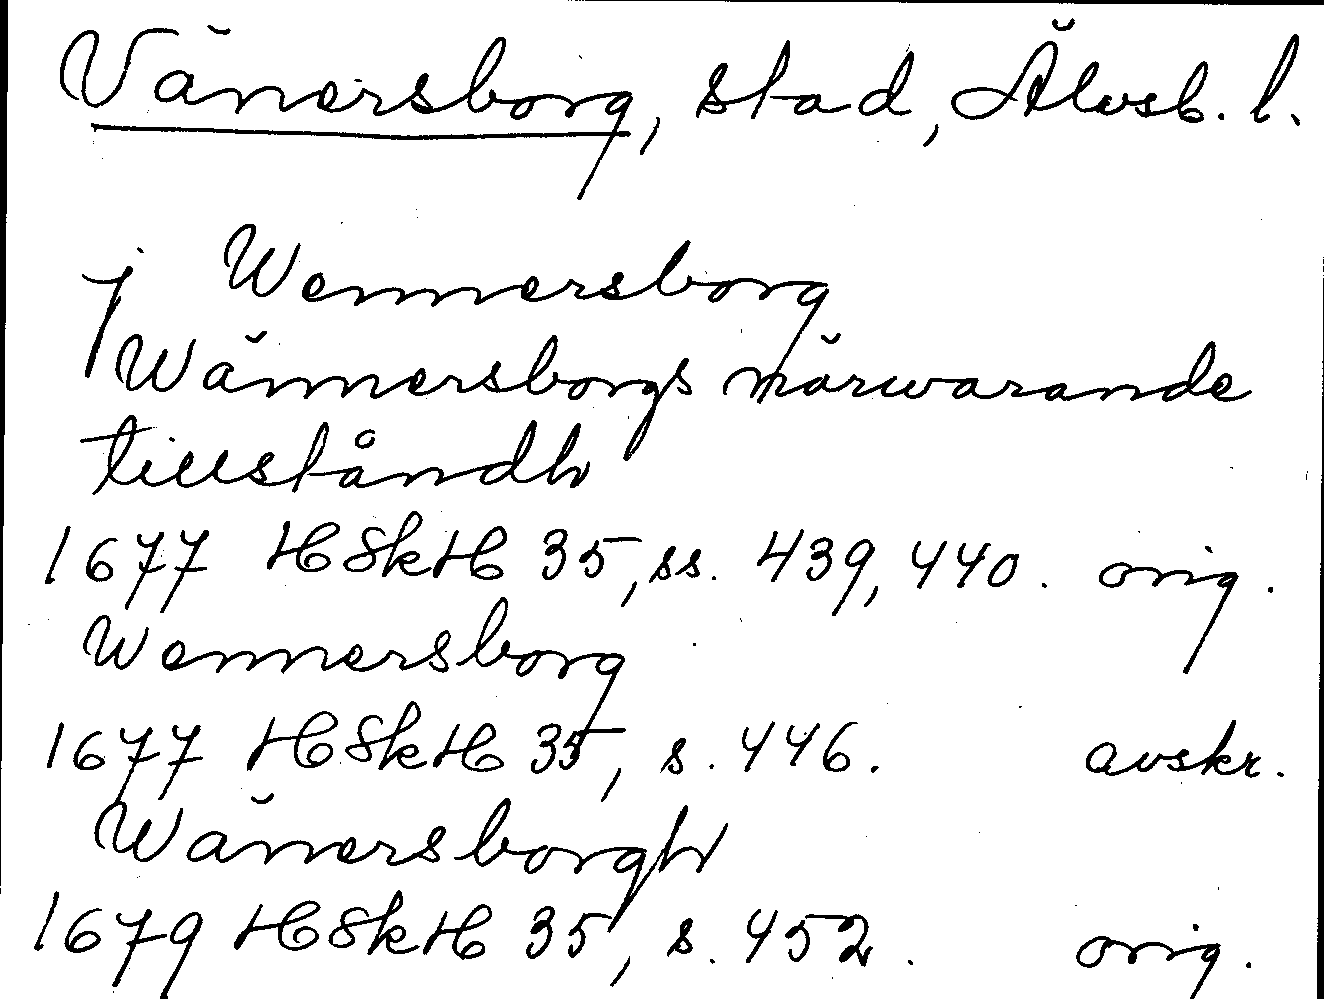 Vänersborg, stad, Älvsb. l.
j Wennersborg
Wännersborgs närwarande
tillståndh
1677 HSkH 35, ss. 439, 440. orig.
Wennersborg
1677 HSkH 35, s. 446. avskr.
Wänersborgh
1679 HSkH 35, s. 452. orig.